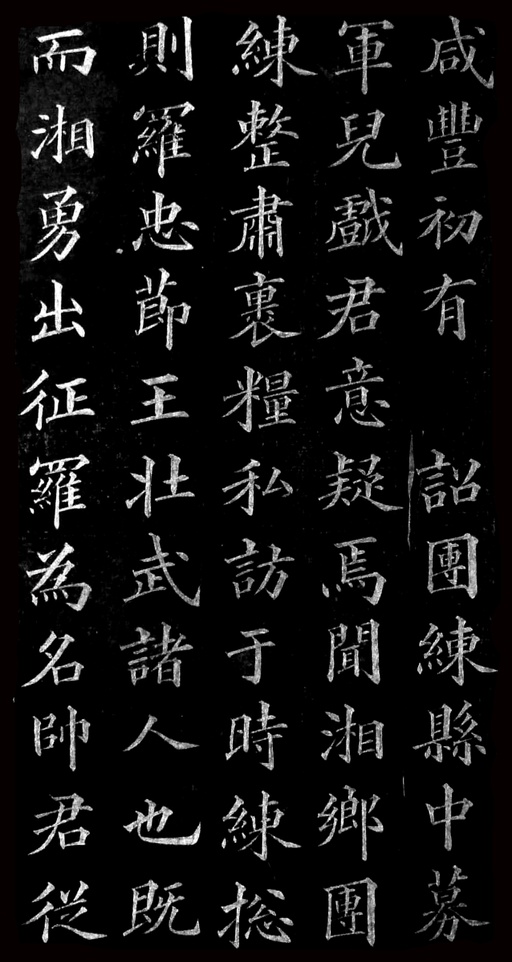 咸豐初有 詔團練縣中募
軍兒戲君意疑焉聞湘鄉團
練整肅裹糧私訪于時練総
則羅忠節王壯武諸人也既
而湘勇出征羅為名帥君従